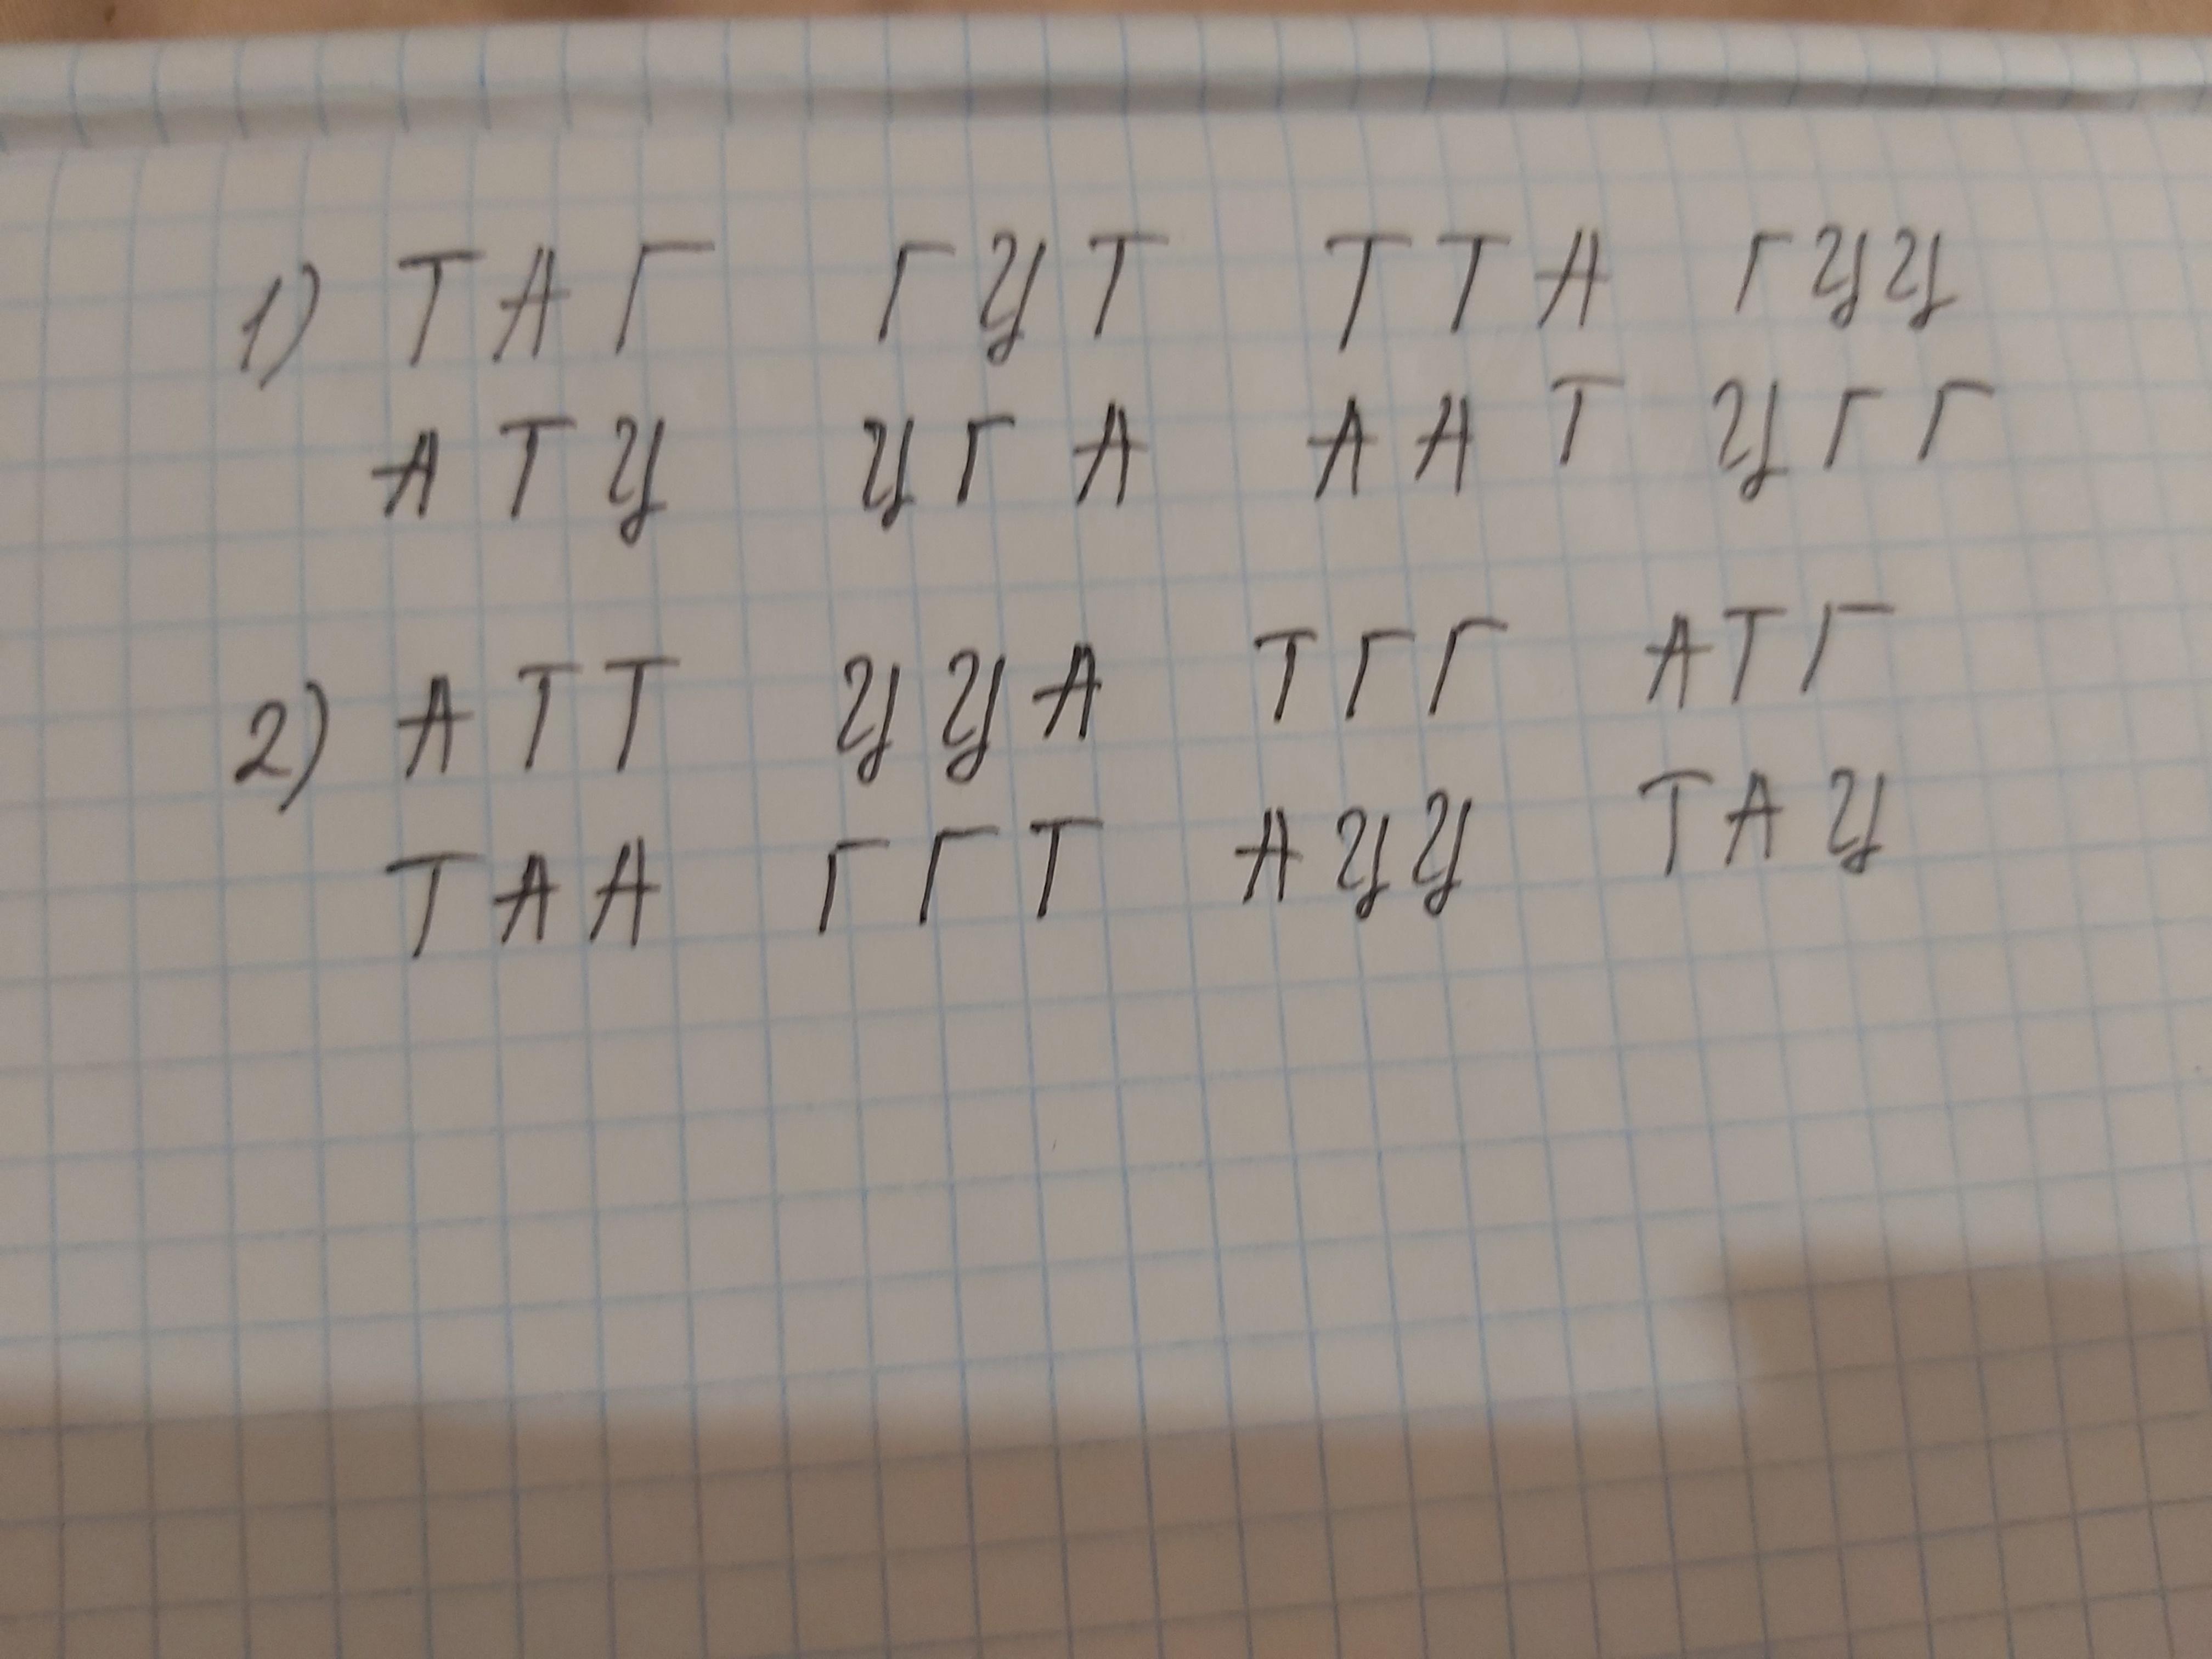 1) ТАГ ГЦТ ТТА ГЦЦ
АТЦ ЦГА ААТ ЦГГ
2) АТТ ЦЦА ТГГ АТГ
ТАА ГГТ АЦЦ ТАЦ